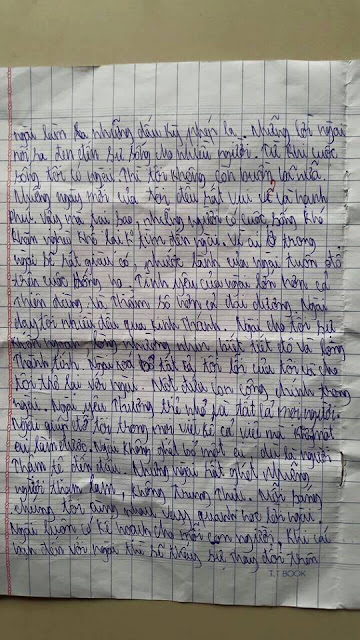 ngài làm ra những dấu kỳ phép lạ... Những lời ngài
nói ra đem đến sự sống cho nhiều người. Từ khi cuộc
sống tôi có ngài thì tôi không còn buồn bã nữa.
Những ngày mới của tôi đều rất vui vẻ và hạnh
phúc. Vậy mà tại sao, những người có cuộc sống khó
khăn nghèo khổ lại k tìm đến ngài. Vì ai ở trong
ngài sẽ rất giàu có, phước lành của ngài tuôn đổ
trên cuộc sống họ. Tình yêu của ngài lớn hơn cả
thiên đàng và thẳm sâu hơn cả đại dương. Ngài
dạy tôi nhiều điều qua kinh Thánh. Ngài cho tôi sự
khôn ngoan, lòng nhường nhịn, biết tiết độ và lòng
Thành tính. Ngài xóa bỏ tất cả tội lỗi của tôi và cho
tôi trở lại với ngài. Một tiêu con công chính trong
ngài. Ngài yêu Thương trẻ nhỏ và tất cả mọi người.
Ngài quan tâm tôi trong mọi việc kể cả việc mà
em làm được. Ngài không ghét bỏ một ai, dù là người
Thậm tệ đến đâu. Nhưng ngài rất ghét những
người tham lam, không trung thực. Nên bây
chúng tôi cùng nhau quanh học lời ngài.
Ngài luôn có kế hoạch cho mỗi con người. Khi các
bạn đến với ngài thì sẽ thấy sự thay đổi trên
T.T BOOK